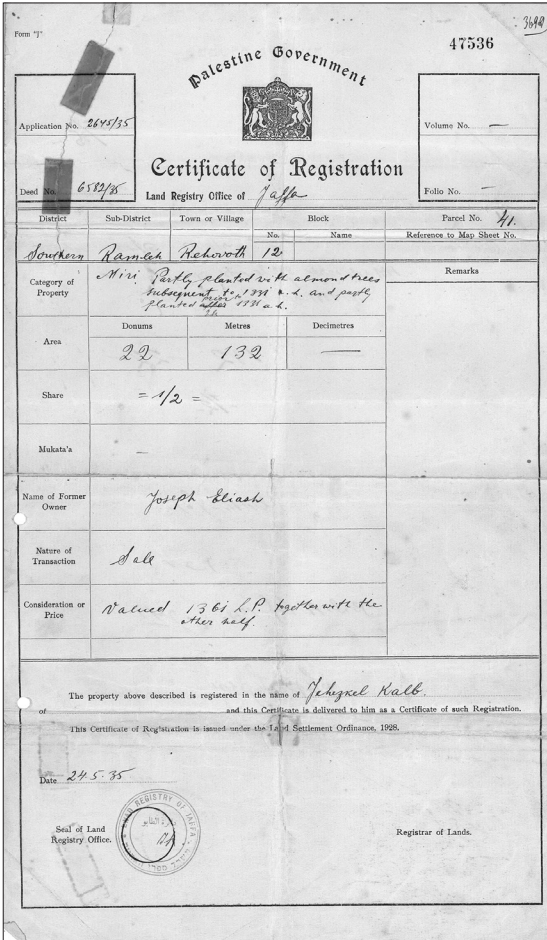 3692
Form "J"
47536
Palestine Government
Application No. 2645/35
Volume No. —
Certificate of Registration
Deed No. 6582/35
Land Registry Office of Jaffa
Folio No. —
District Sub-District Town or Village Block Parcel No. 41.
No. Name Reference to Map Sheet No.
Southern Ramleh Rehovoth 12
Category of Property
Miri. Partly planted with almond trees
subsequent to 1331 a.h. and partly
planted prior to 1331 a.h.
Remarks
Donums Metres Decimetres
Area 22 132 —
Share = 1/2 =
Mukata'a —
Name of Former Owner Joseph Eliash
Nature of Transaction Sale
Consideration or Price Valued 1361 L.P. together with the
other half.
The property above described is registered in the name of Jehezkel Kalb.
of and this Certificate is delivered to him as a Certificate of such Registration.
This Certificate of Registration is issued under the Land Settlement Ordinance, 1928.
Date 24.5.35
LAND REGISTRY OF JAFFA
Seal of Land
Registry Office.
Registrar of Lands.